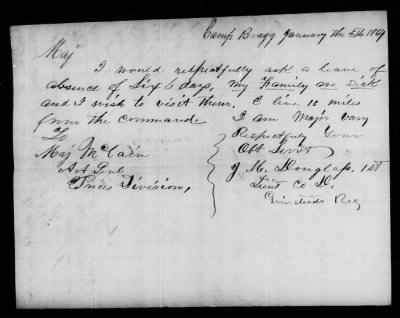 Camp Bragg January the 5th 1864
Maj
I would respectfully ask a leave of
absence of Six 6 days, my Family are Sick
and I wish to visit them. I live 10 miles
from the command. I am Major vary
To
Respectfully Your
Maj McCain
Obt Servt
A A Genl
J. M. Douglass, 1st
Prices Division,
Lieut Co D.
Reg